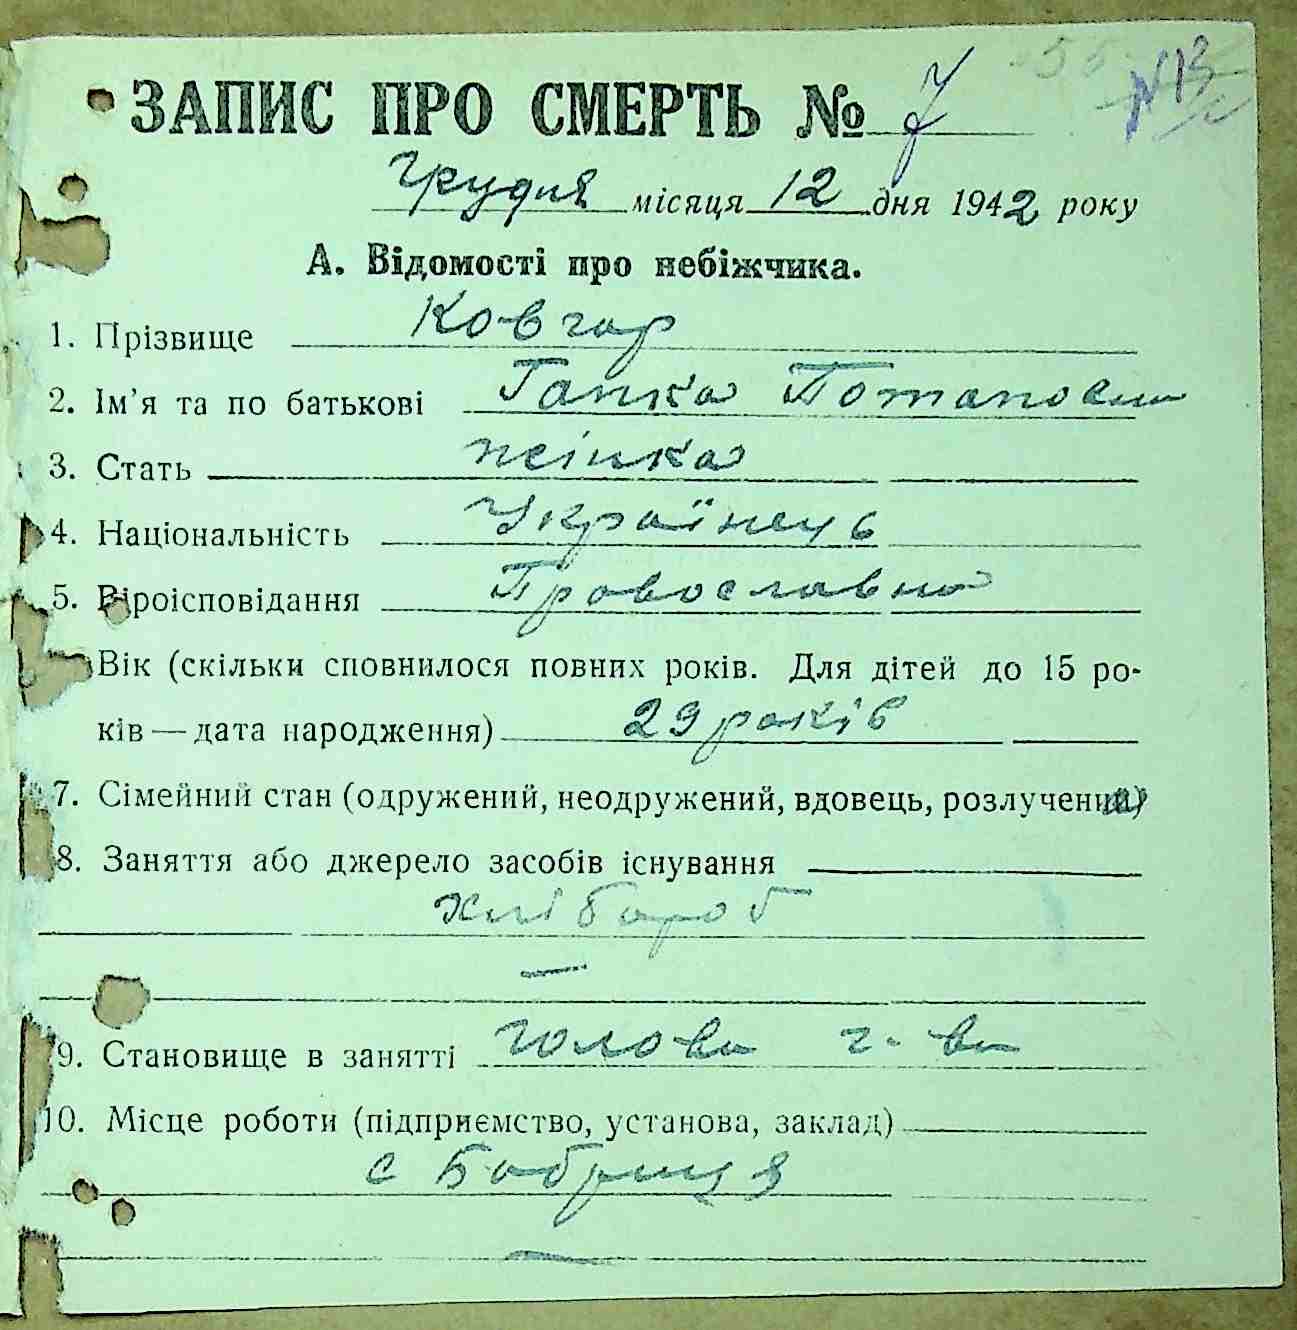 ЗАПИС ПРО СМЕРТЬ № 7
N13
Грудня місяця 12 дня 1942 року
А. Відомості про небіжчика.
1. Прізвище Ковгар
2. Ім'я та по батькові Гапка Потаповна
3. Стать жінка
4. Національність Українець
5. Віроісповідання Провославна
Вік (скільки сповнилося повних років. Для дітей до 15 ро-
ків — дата народження) 29 років
7. Сімейний стан (одружений, неодружений, вдовець, розлучений)
8. Заняття або джерело засобів існування
хлібороб
—
9. Становище в занятті голова г-ва
10. Місце роботи (підприємство, установа, заклад)
с Бобриця
—